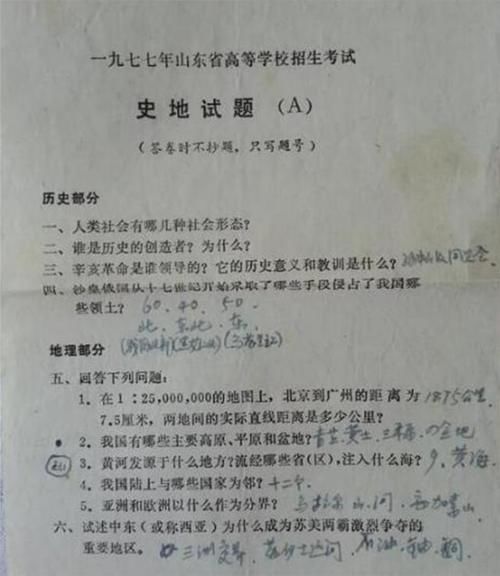 一九七七年山东省高等学校招生考试
史地试题（A）
（答卷时不抄题，只写题号）
历史部分
一、人类社会有哪几种社会形态？
二、谁是历史的创造者？为什么？
三、辛亥革命是谁领导的？它的历史意义和教训是什么？ 同盟会
四、沙皇俄国从十七世纪开始采取了哪些手段侵占了我国哪
些领土？ 60．40．50．
北．东北．东．
地理部分
五、回答下列问题：
1．在1：25,000,000的地图上，北京到广州的距离为 1875公里
7.5厘米，两地间的实际直线距离是多少公里？
2．我国有哪些主要高原、平原和盆地？ 青芷黄土 三 四盆地
3．黄河发源于什么地方？流经哪些省(区)，注入什么海？ 9，黄海
4．我国陆上与哪些国家为邻？ 十二个
5．亚洲和欧洲以什么作为分界？ 乌拉尔山．河．高加索山
六、试述中东（或称西亚）为什么成为苏美两霸激烈争夺的
重要地区。 三洲交界．苏伊士运河 石油